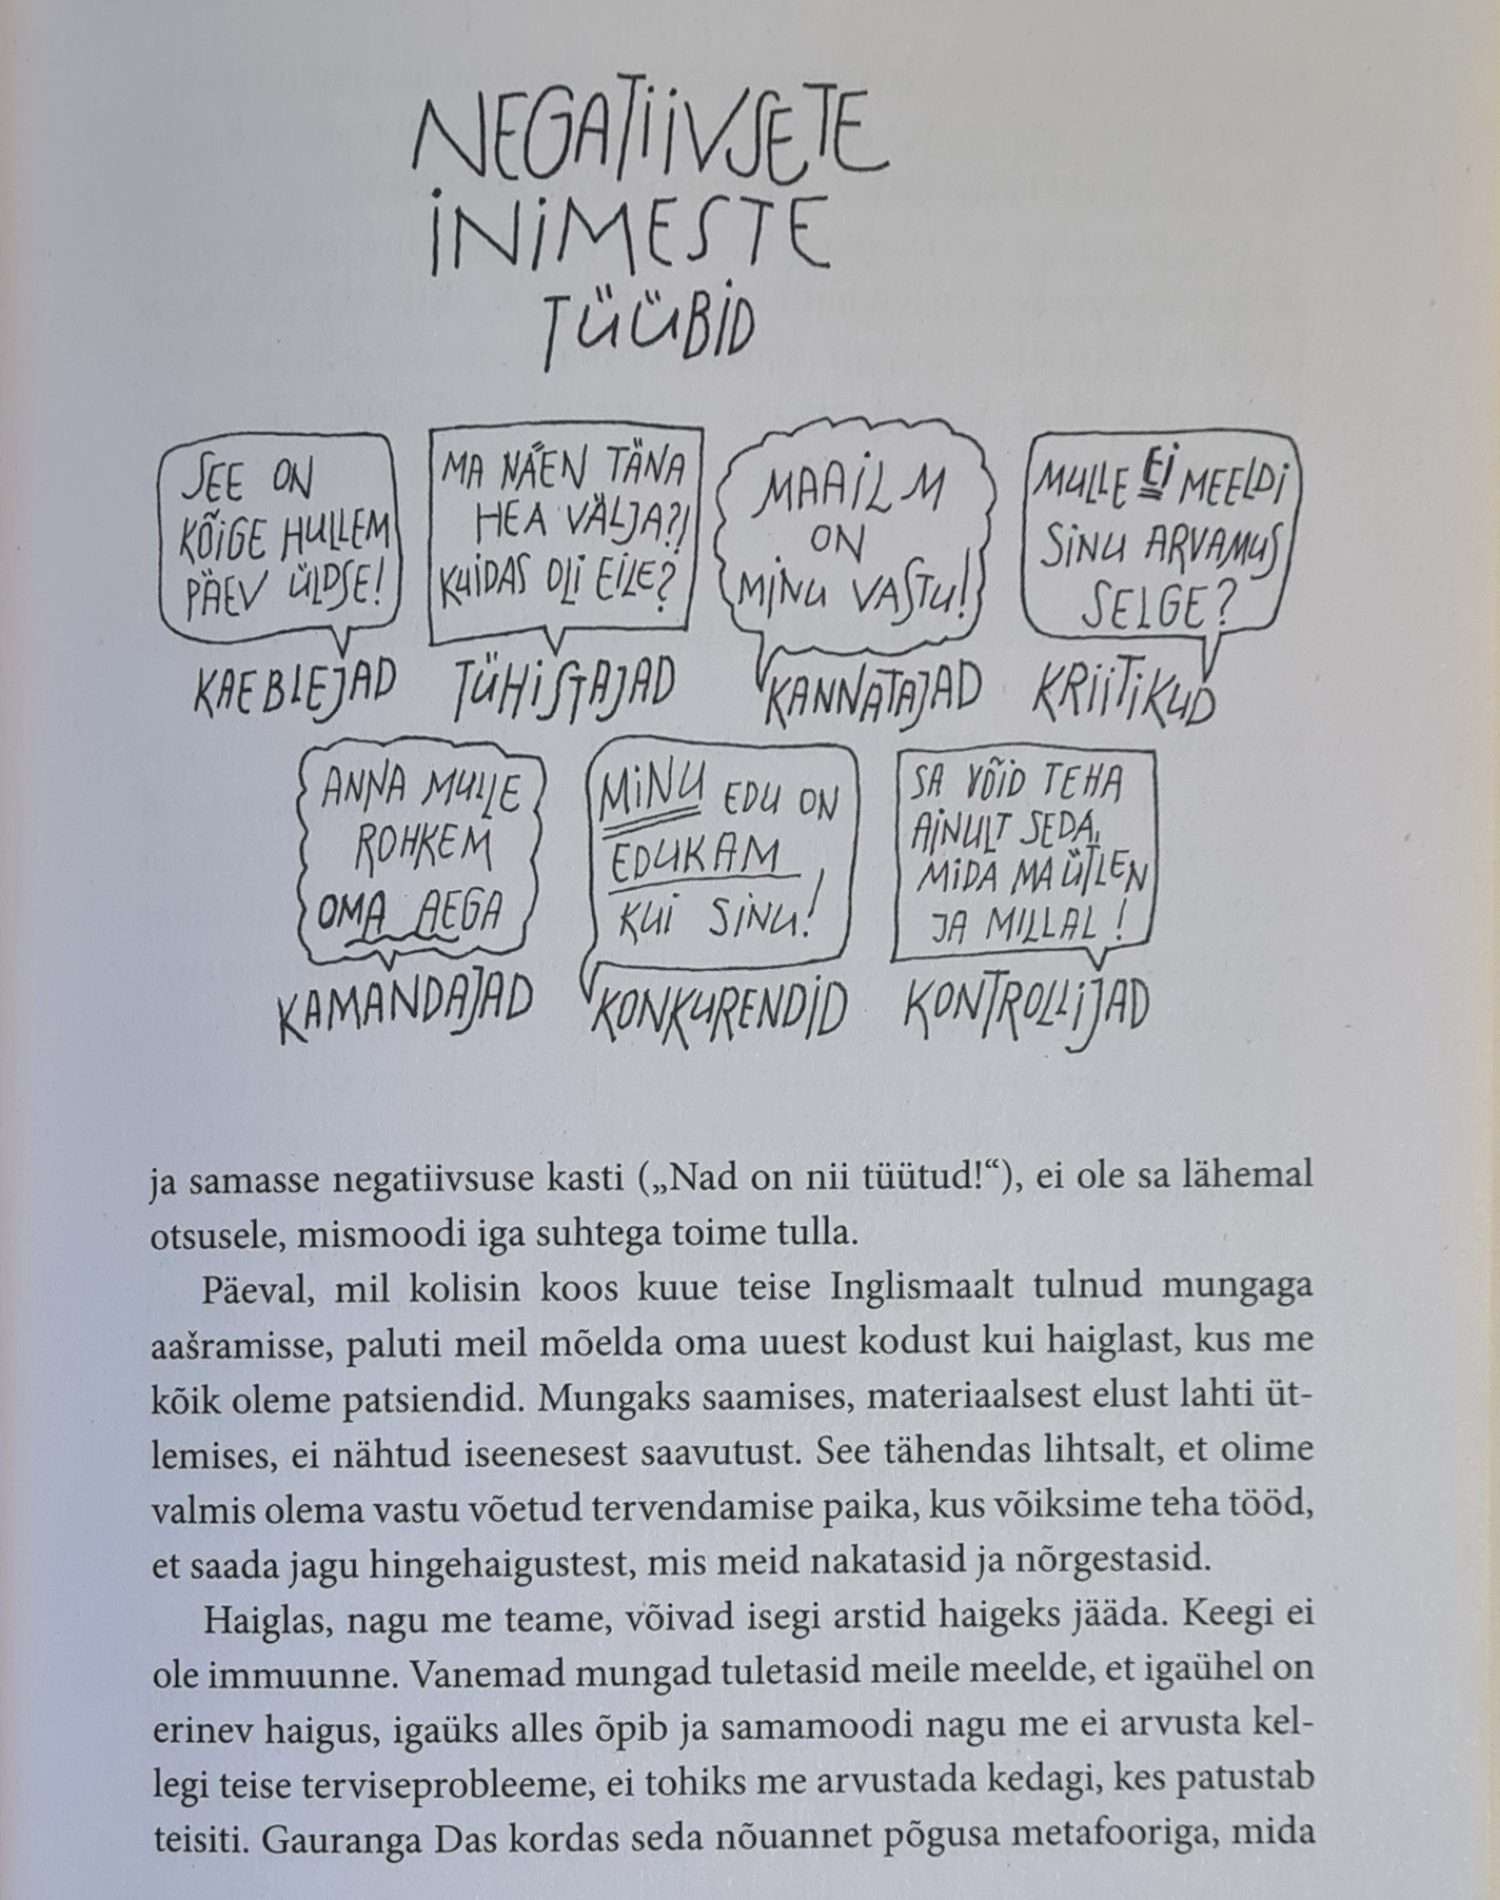 NEGATIIVSETE
INIMESTE
TÜÜBID
SEE ON
KÕIGE HULLEM
PÄEV ÜLDSE!
KAEBLEJAD
MA NÄEN TÄNA
HEA VÄLJA?!
KUIDAS OLI EILE?
TÜHISTAJAD
MAAILM
ON
MINU VASTU!
KANNATAJAD
MULLE EI MEELDI
SINU ARVAMUS
SELGE?
KRIITIKUD
ANNA MULLE
ROHKEM
OMA AEGA
KAMANDAJAD
MINU EDU ON
EDUKAM
KUI SINU!
KONKURENDID
SA VÕID TEHA
AINULT SEDA,
MIDA MA ÜTLEN
JA MILLAL!
KONTROLLIJAD
ja samasse negatiivsuse kasti („Nad on nii tüütud!“), ei ole sa lähemal
otsusele, mismoodi iga suhtega toime tulla.
Päeval, mil kolisin koos kuue teise Inglismaalt tulnud mungaga
aašramisse, paluti meil mõelda oma uuest kodust kui haiglast, kus me
kõik oleme patsiendid. Mungaks saamises, materiaalsest elust lahti üt-
lemises, ei nähtud iseenesest saavutust. See tähendas lihtsalt, et olime
valmis olema vastu võetud tervendamise paika, kus võiksime teha tööd,
et saada jagu hingehaigustest, mis meid nakatasid ja nõrgestasid.
Haiglas, nagu me teame, võivad isegi arstid haigeks jääda. Keegi ei
ole immuunne. Vanemad mungad tuletasid meile meelde, et igaühel on
erinev haigus, igaüks alles õpib ja samamoodi nagu me ei arvusta kel-
legi teise terviseprobleeme, ei tohiks me arvustada kedagi, kes patustab
teisiti. Gauranga Das kordas seda nõuannet põgusa metafooriga, mida